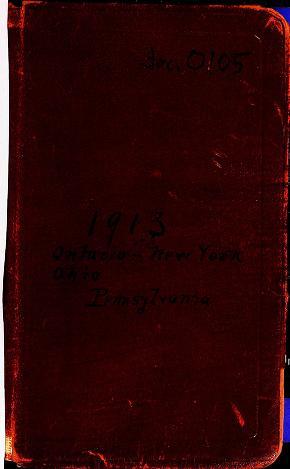 Inc. 0105
1913
Ontario - New York
Ohio
Pennsylvania